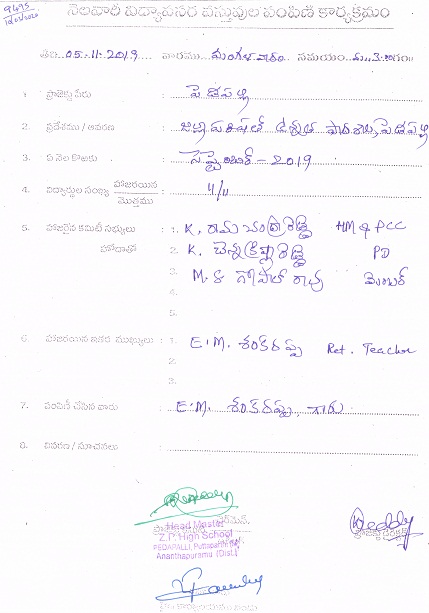 9495
నెలవారీ విద్యావసర వస్తువుల పంపిణీ కార్యక్రమం
తేది. 05-11-2019 వారము మంగళవారం సమయం మ. 3-30గం
1. ప్రాజెక్టు పేరు : పెడపల్లి
2. ప్రదేశము / ఆవరణ : జిల్లా పరిషత్ ఉన్నత పాఠశాల, పెడపల్లి
3. ఏ నెల కొఱకు : సెప్టెంబర్ - 2019
4. విద్యార్థుల సంఖ్య హాజరయిన / మొత్తము : 4/11
5. హాజరైన కమిటీ సభ్యులు : 1. K. రామచంద్రారెడ్డి HM & PCC
హోదాతో 2. K. చెన్నక్రిష్ణారెడ్డి PD
3. M.S గోపాల్ రావు మెంబర్
4.
5.
6. హాజరయిన ఇతర ముఖ్యులు : 1. E.M. శంకరప్ప Ret. Teacher
2.
3.
7. పంపిణీ చేసిన వారు : E.M. శంకరప్ప గారు
8. వివరణ / సూచనలు :
Head Master
Z.P. High School
PEDAPALLI, Puttaparthi (M)
Ananthapuramu (Dist.)
Reddy
ప్రాజెక్టు డైరెక్టర్